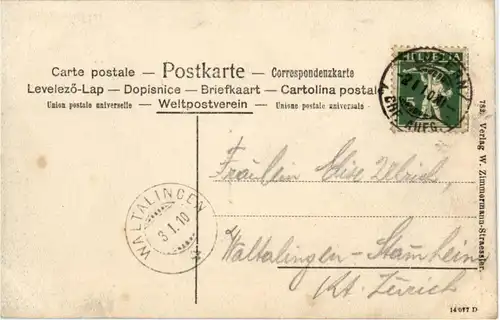 Carte postale — Postkarte — Correspondenzkarte
Levelező-Lap — Dopisnice — Briefkaart — Cartolina postale
Union postale universelle — Weltpostverein — Unione postale universale
HELVETIA
5
WALTALINGEN
3.I.10
Fräulein Elise Ulrich,
Waltalingen-Stammheim
Kt. Zürich
752. Verlag W. Zimmermann-Straessler.
14077 D